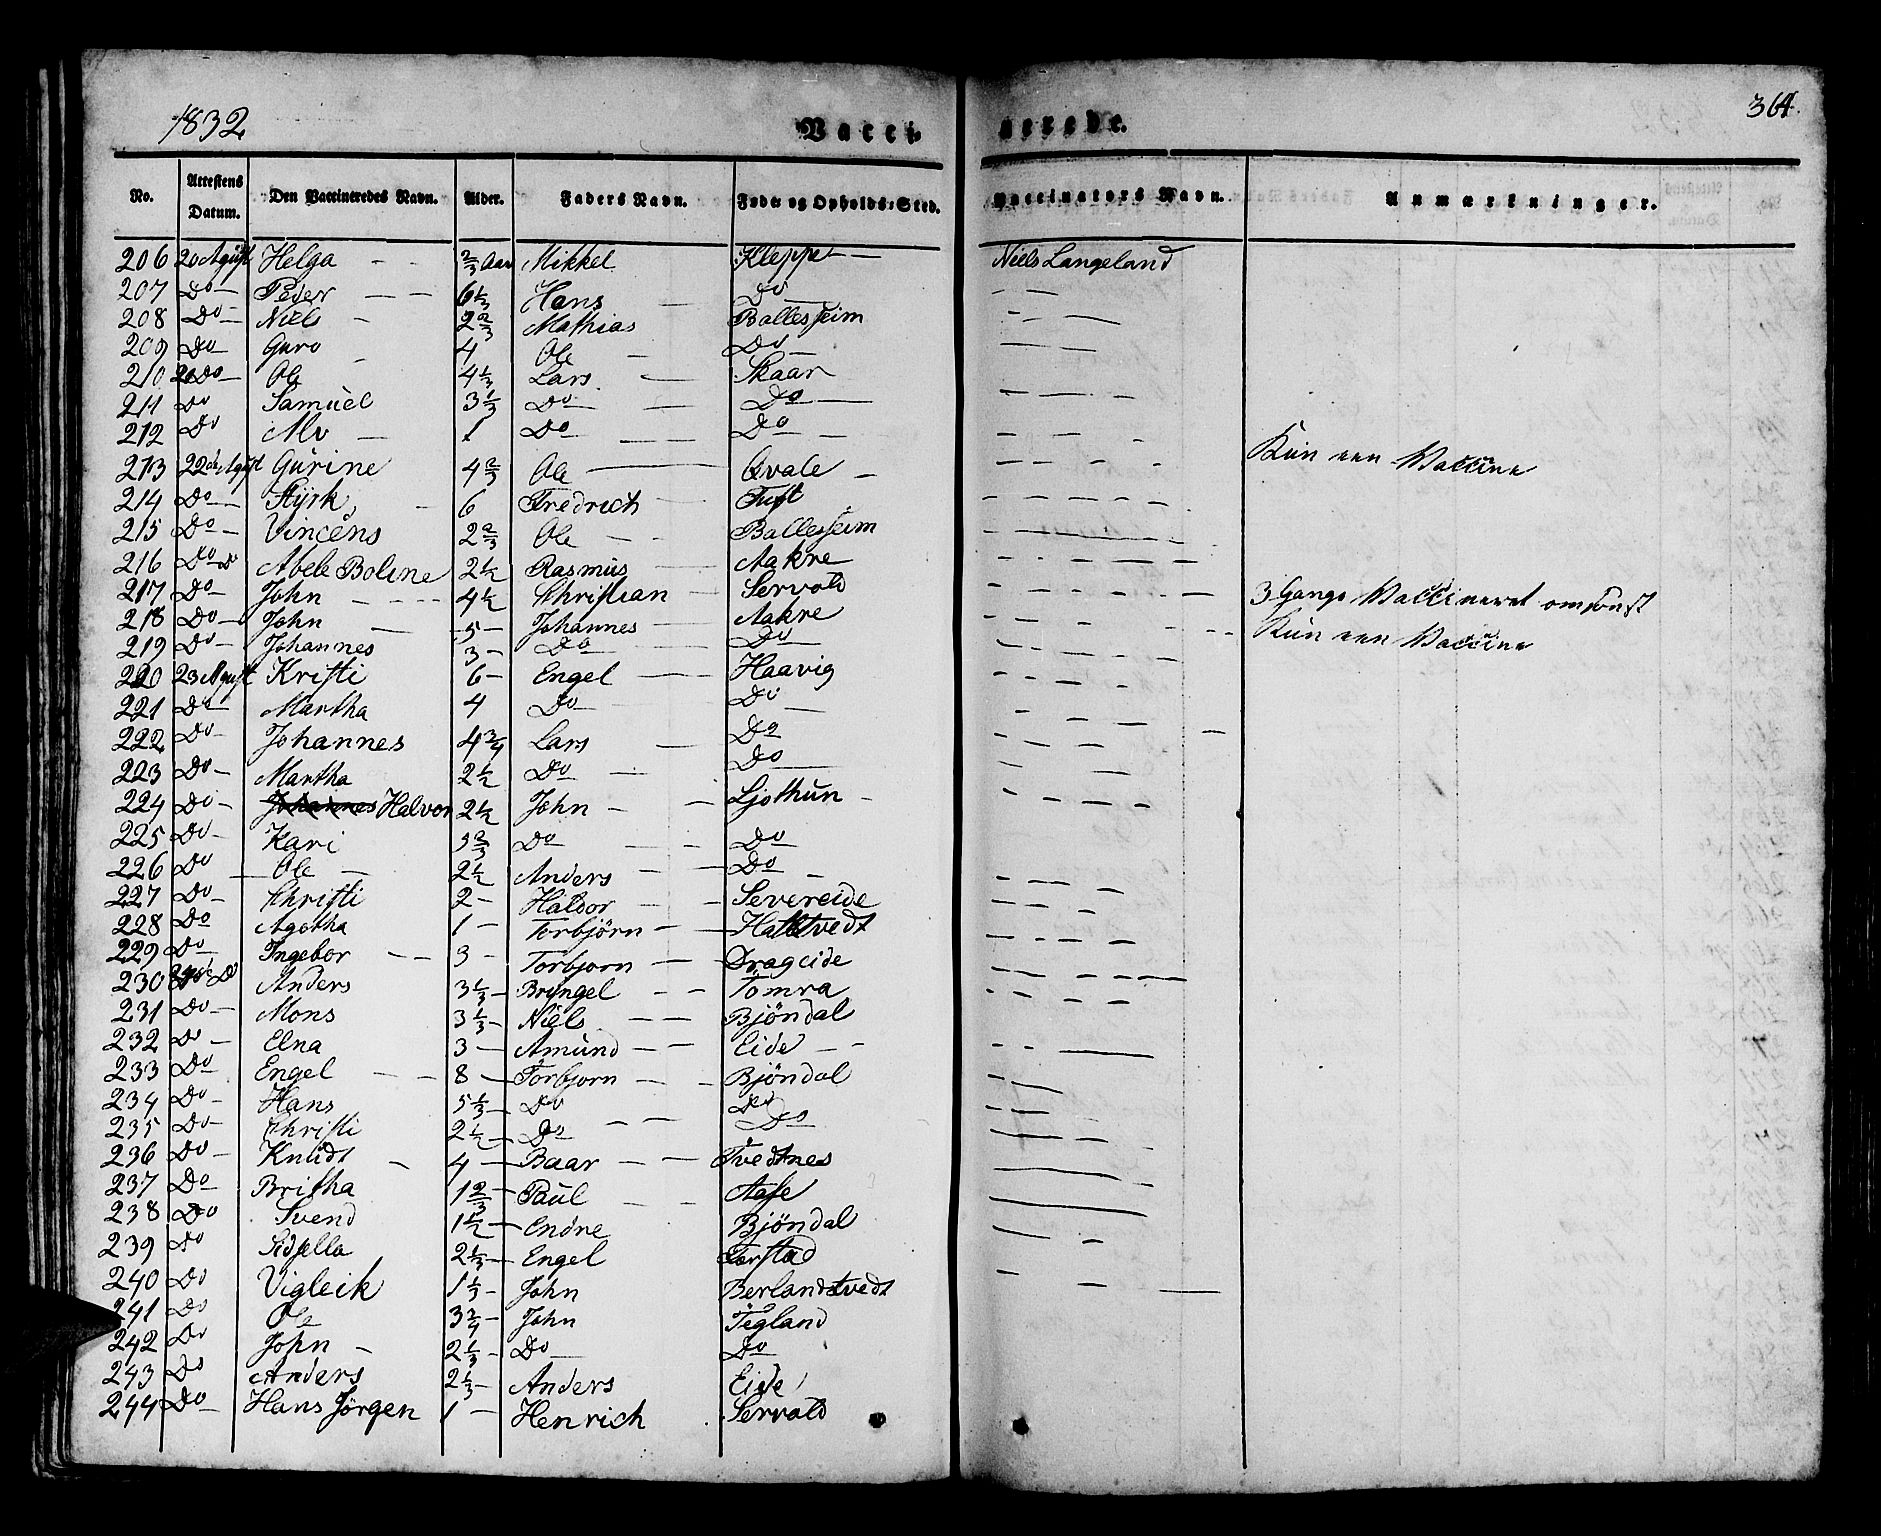 1832
Vacci-
nerede.
364.
No. Attestens Datum. Den Vaccineredes Navn. Alder. Faders Navn. Føde- og Opholds-Sted. Vaccinators Navn. Anmærkninger.
206 20 Agust Helga - - 2/3 Aar Mikkel Kleppe - Niels Langeland
207 Do - Peder - - 6 1/3 Hans - Do
208 Do - Niels - 2 2/3 Mathias Ballesheim
209 Do Guro - 4 Ole - Do -
210 20 Do - Ole 4 1/3 Lars - Skaar
211 Do Samuel 3 1/3 Do - Do -
212 Do - 1 Do - Do -
213 22de Agust Gurine 4 2/3 Ole - Qvale - Kun een Vaccine
214 Do - Styrk - 6 Fredrich - Tuft
215 Do - Vincens 2 2/3 Ole - Ballesheim
216 Do Abele Boline 2 1/2 Rasmus - Aakre
217 Do - John - - - 4 1/2 Christian - Servold 3 Gange Vaccineret omsonst
218 Do - John - 5 - Johannes - Aakre
219 Do - Johannes 3 - Do - Do Kun een Vaccine
220 23 Agust Kristi 6 - Engel - Haavig
221 Do Martha 4 Do - Do -
222 Do - Johannes 4 3/4 Lars - Do
223 Do - Martha 2 1/2 Do - Do
224 Do - Johannes Halvor 2 1/2 John - - Ljothun -
225 Do - Kari 5 2/3 Do - - Do
226 Do - Ole - 2 1/2 Anders - - Do -
227 Do - Christi 2 - Haldor - - Severeide
228 Do Agatha 1 - Torbjörn - - Hattetvedt
229 Do - Ingebor - - 3 - Torbjorn - - Drageide
230 Do Anders 3 1/3 - Bryngel - - Tomra
231 Do - Mons 3 1/3 - Niels - - Bjöndal
232 Do - Elna 3 - Amund - - Eide - -
233 Do Engel - - 8 - Torbjorn - - Bjöndal
234 Do - Hans 5 1/3 - Do Do
235 Do - Christi 2 1/2 - Do - - Do
236 Do - Knudt - 4 - Baar - - Tvedtnes
237 Do Britha 1 2/3 - Paul - - Aase
238 Do Svend 1 1/2 - Endre Bjöndal
239 Do Sidsella 2 1/3 - Engel Torstad
240 Do Vigleik 1 1/3 - John Berlandstvedt
241 Do Ole 3 3/4 - John Tegland
242 Do John - 2 1/3 - Do Do
243 Do Anders 2 1/3 - Anders Eide
244 Do - Hans Jørgen 1 - Henrich Servold